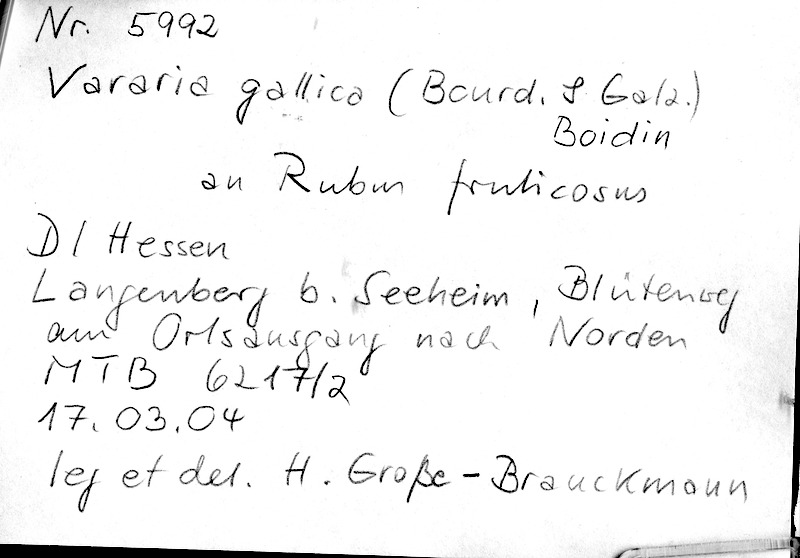 Nr. 5992
Vararia gallica (Bourd. & Galz.)
Boidin
an Rubus fruticosus
D / Hessen
Langenberg b. Seeheim, Blütenweg
am Ortsausgang nach Norden
MTB 6217/2
17.03.04
leg et det. H. Große-Brauckmann